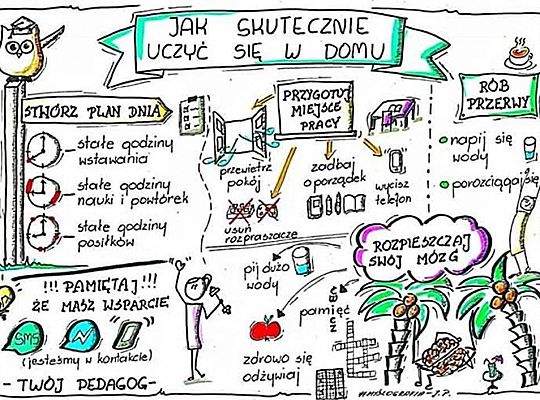 JAK SKUTECZNIE
UCZYĆ SIĘ W DOMU
STWÓRZ PLAN DNIA
stałe godziny
wstawania
stałe godziny
nauki i powtórek
stałe godziny
posiłków
PRZYGOTUJ
MIEJSCE
PRACY
przewietrz
pokój
zadbaj
o porządek
wycisz
telefon
usuń
rozpraszacze
RÓB
PRZERWY
napij się
wody
porozciągaj się
!!! PAMIĘTAJ!!!
ŻE MASZ WSPARCIE
SMS
(jesteśmy w kontakcie)
- TWÓJ PEDAGOG-
ROZPIESZCZAJ
SWÓJ MÓZG
pij dużo
wody
zdrowo się
odżywiaj
pamięć